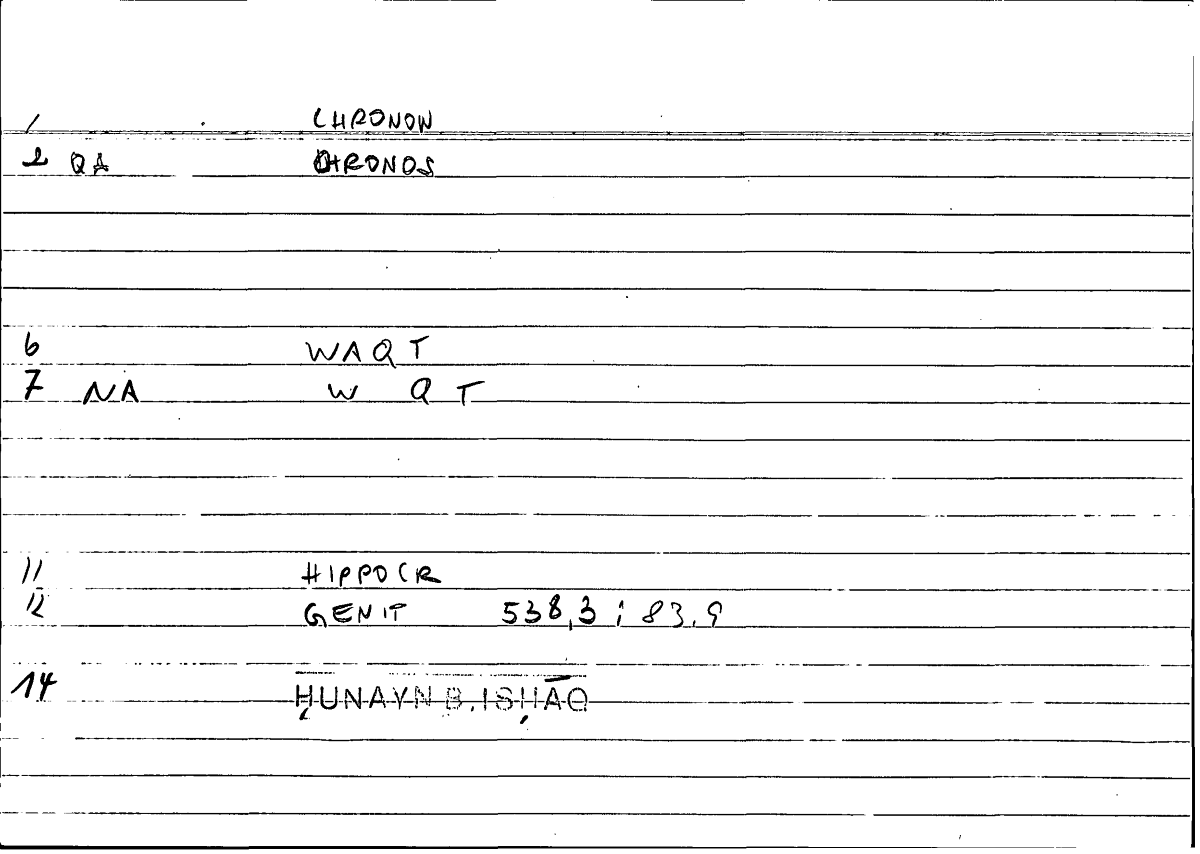 1 CHRONON
2 QA CHRONOS
6 WAQT
7 NA W Q T
11 HIPPOCR
12 GENIT 538,3 ; 83,9
14 ḤUNAYN B. ISḤĀQ